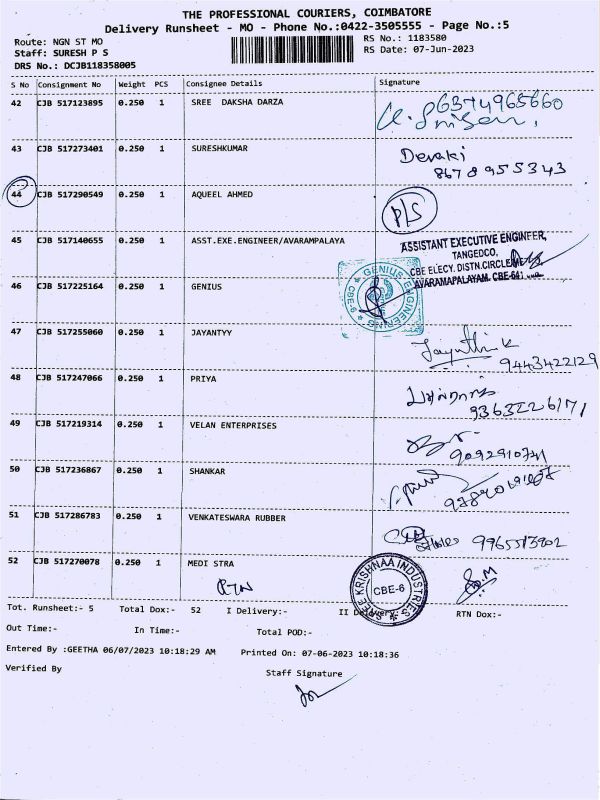 THE PROFESSIONAL COURIERS, COIMBATORE
Delivery Runsheet - MO - Phone No.:0422-3505555 - Page No.:5
Route: NGN ST MO RS No.: 1183580
Staff: SURESH P S RS Date: 07-Jun-2023
DRS No.: DCJB118358005
S No Consignment No Weight PCS Consignee Details Signature
42 CJB 517123895 0.250 1 SREE DAKSHA DARZA 6374965660
43 CJB 517273401 0.250 1 SURESHKUMAR Devaki
8678955343
44 CJB 517290549 0.250 1 AQUEEL AHMED P/S
45 CJB 517140655 0.250 1 ASST.EXE.ENGINEER/AVARAMPALAYA ASSISTANT EXECUTIVE ENGINEER,
TANGEDCO,
CBE ELECY. DISTN.CIRCLE
AVARAMAPALAYAM, CBE-641
46 CJB 517225164 0.250 1 GENIUS GENIUS ENGINEERING CBE-6
47 CJB 517255060 0.250 1 JAYANTYY Jayanthi K
9443422129
48 CJB 517247066 0.250 1 PRIYA
9363226171
49 CJB 517219314 0.250 1 VELAN ENTERPRISES
50 CJB 517236867 0.250 1 SHANKAR
51 CJB 517286783 0.250 1 VENKATESWARA RUBBER
52 CJB 517270078 0.250 1 MEDI STRA
RTN SREE KRISHNAA INDUSTRIES CBE-6
Tot. Runsheet:- 5 Total Dox:- 52 I Delivery:- II Delivery:- RTN Dox:-
Out Time:- In Time:- Total POD:-
Entered By :GEETHA 06/07/2023 10:18:29 AM Printed On: 07-06-2023 10:18:36
Verified By Staff Signature